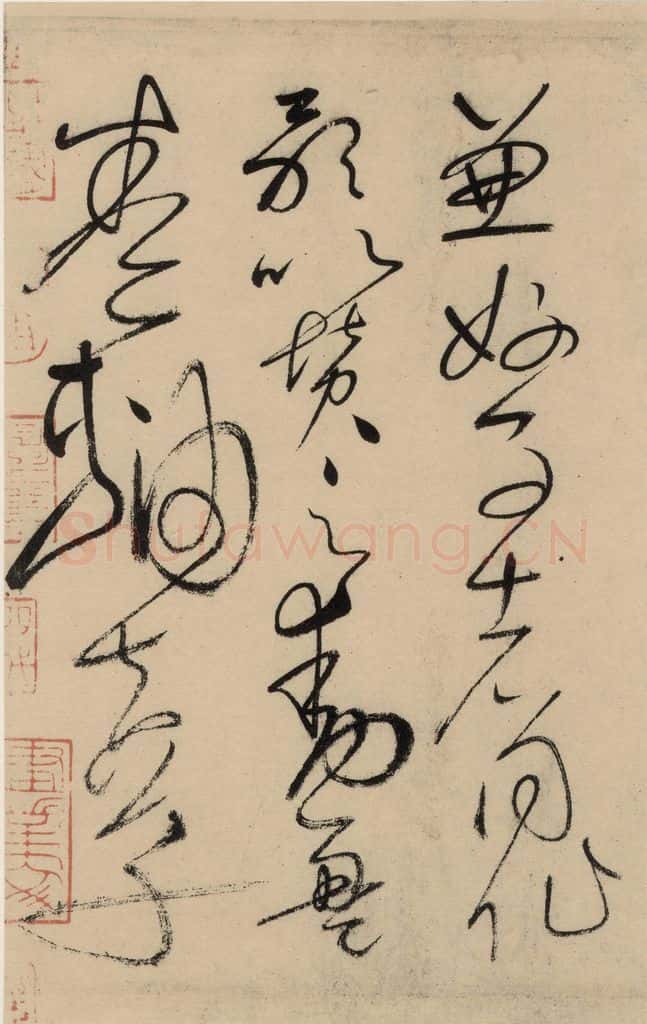 兼好事者同作
歌以贊之動盈
卷軸夫草
Shufawang.CN